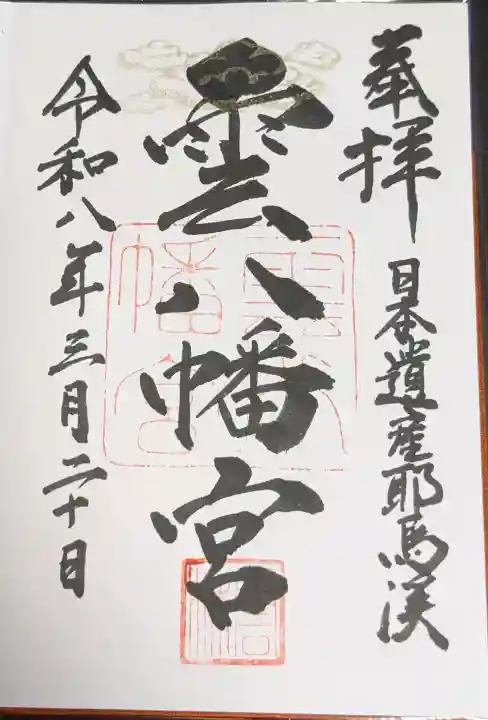 奉拝
日本遺産耶馬渓
雲八幡宮
令和八年三月二十日
雲八幡宮